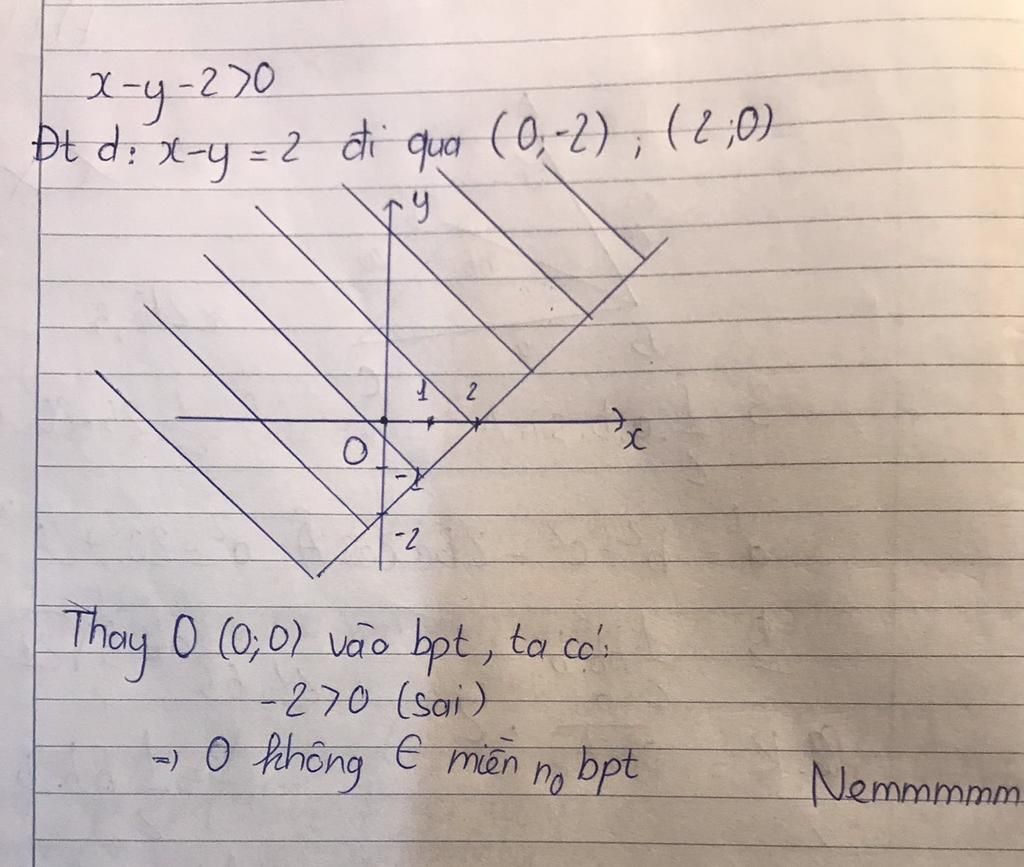 x-y-2>0
Đt d: x-y=2 đi qua (0;-2) ; (2;0)
y
1 2
x
O
-1
-2
Thay O (0;0) vào bpt, ta có:
-2>0 (sai)
=> O không ∈ miền n₀ bpt
Nemmmmm